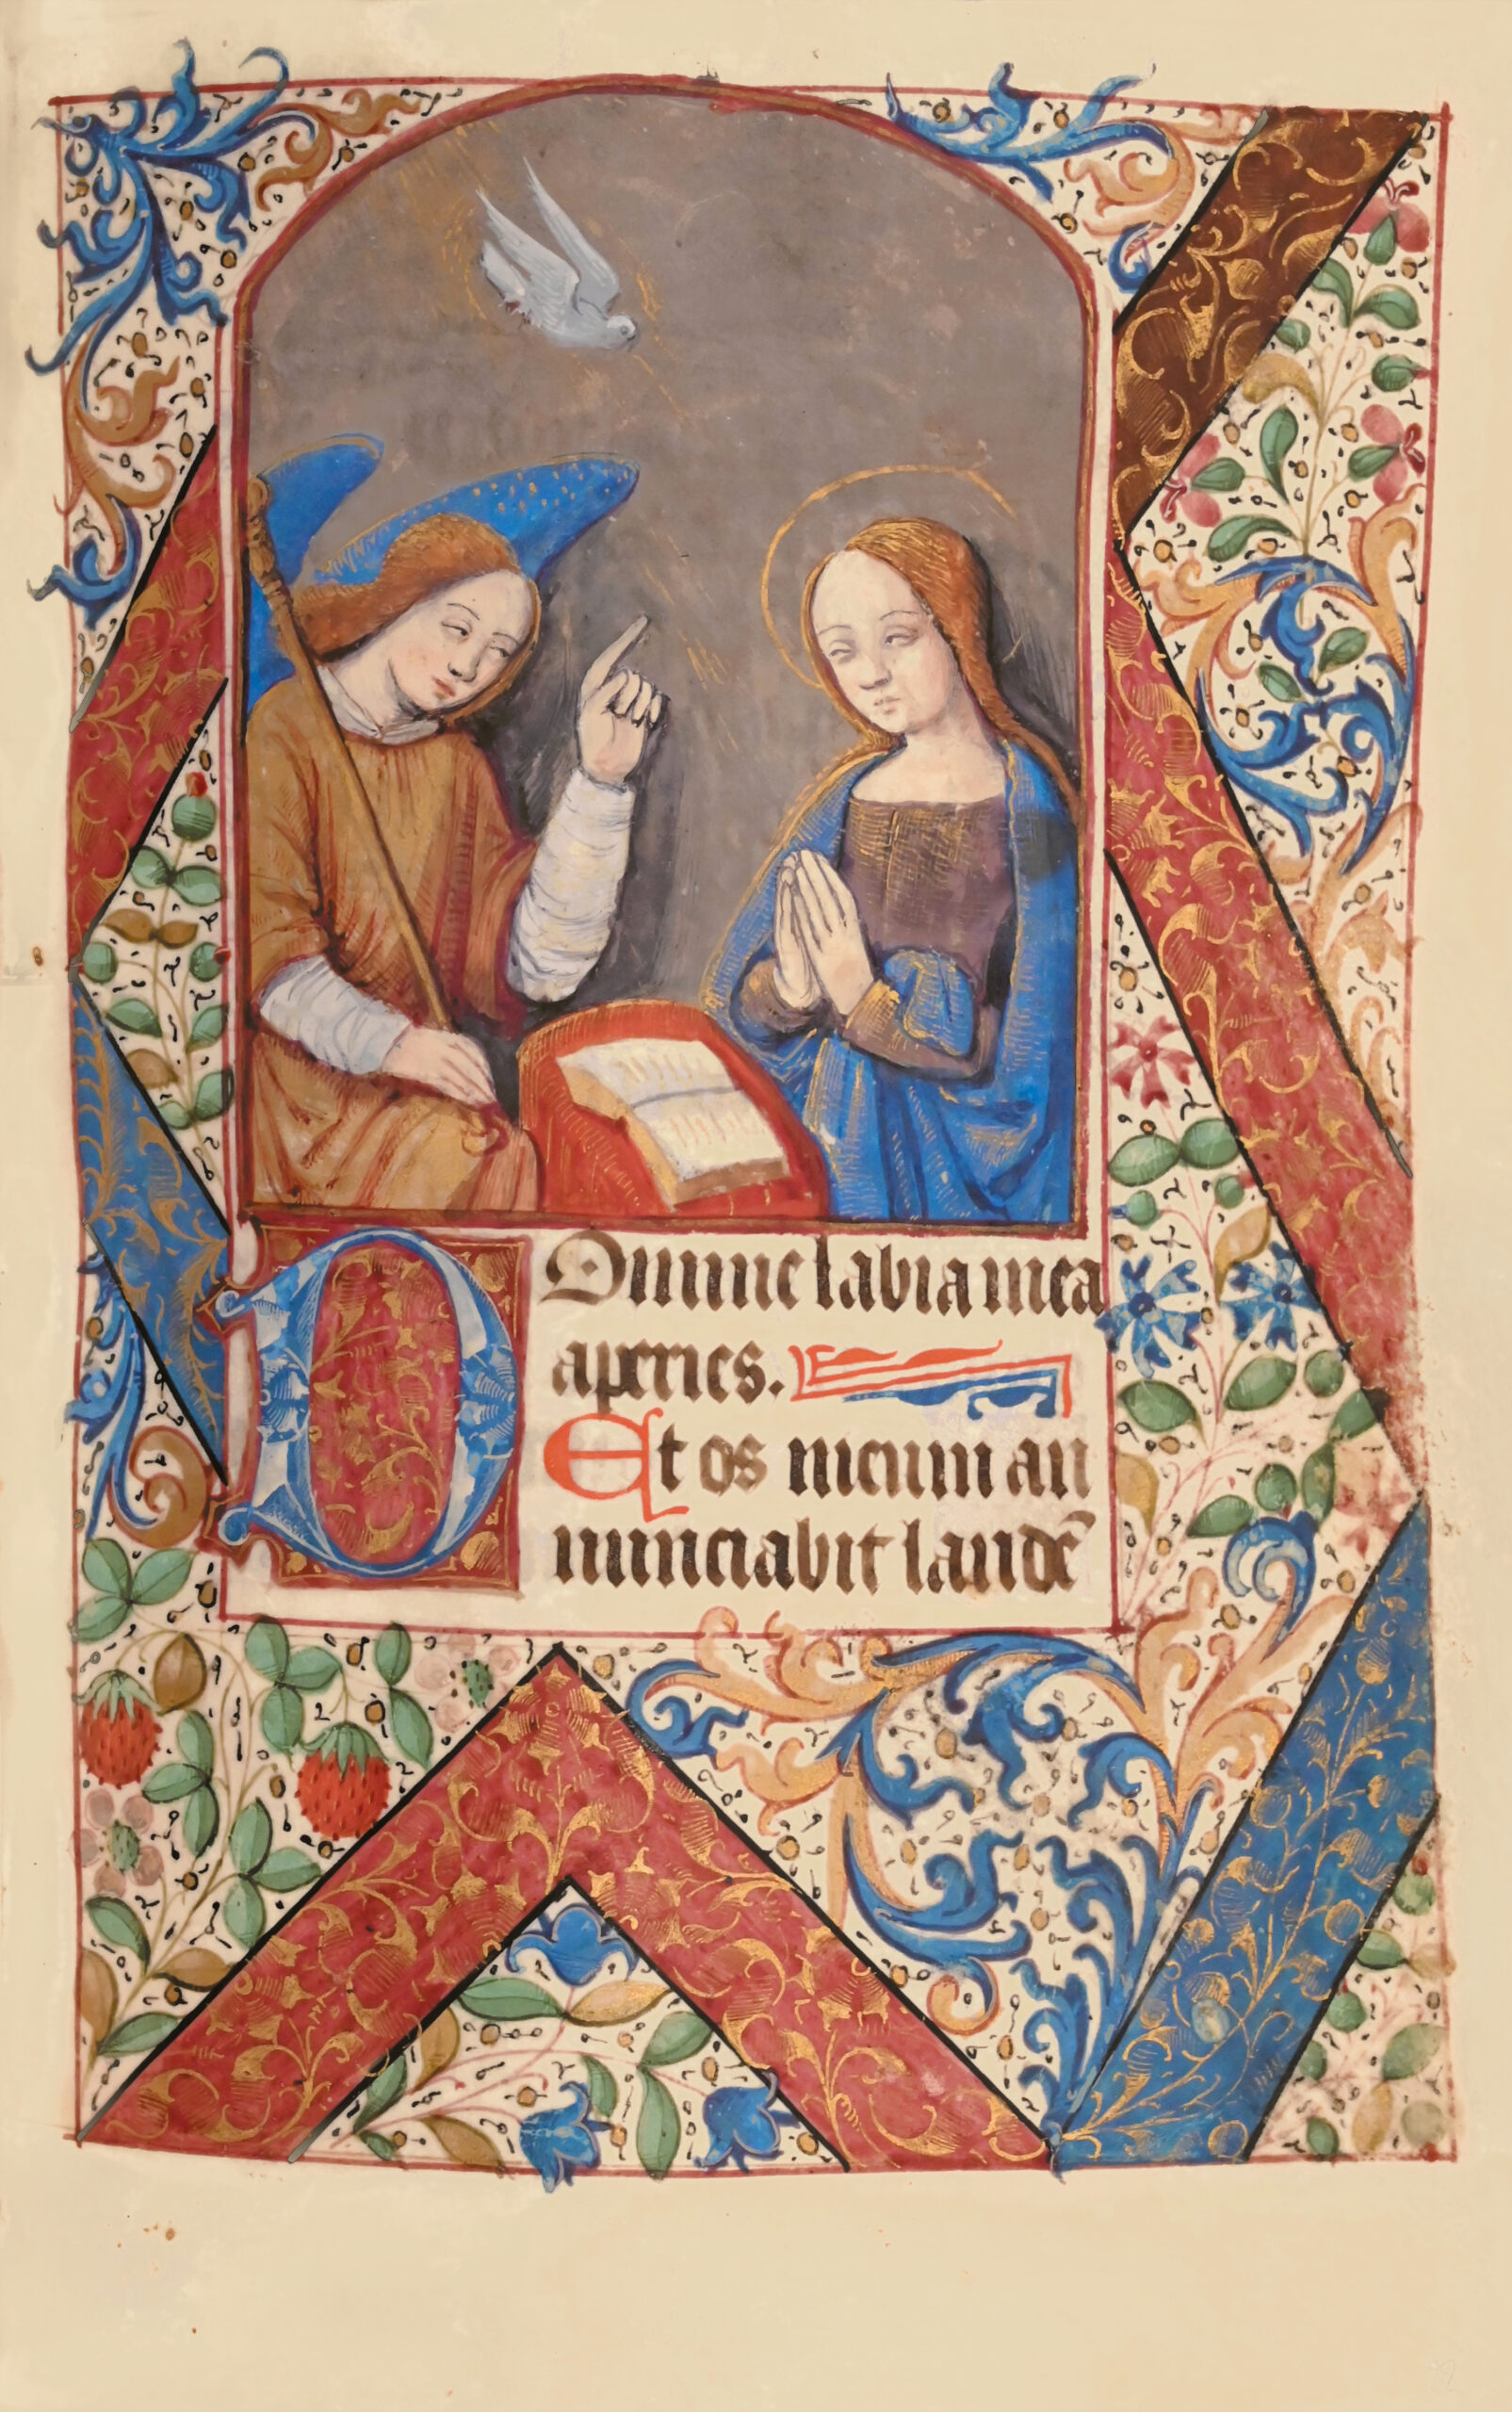 DOmine labia mea
aperies.
Et os meum an
nunciabit laudē